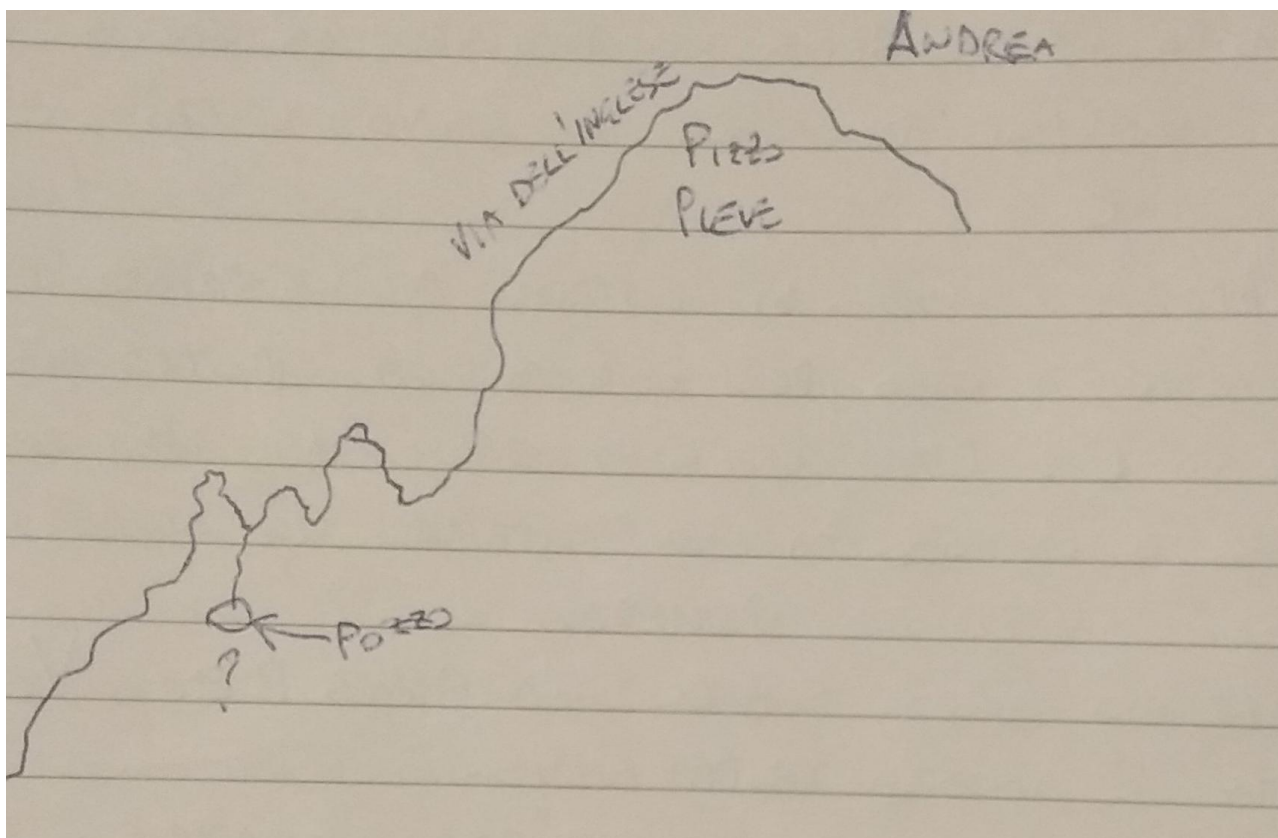 ANDREA
VIA DELL'INGLESE
PIZZO
PIEVE
POZZO
?